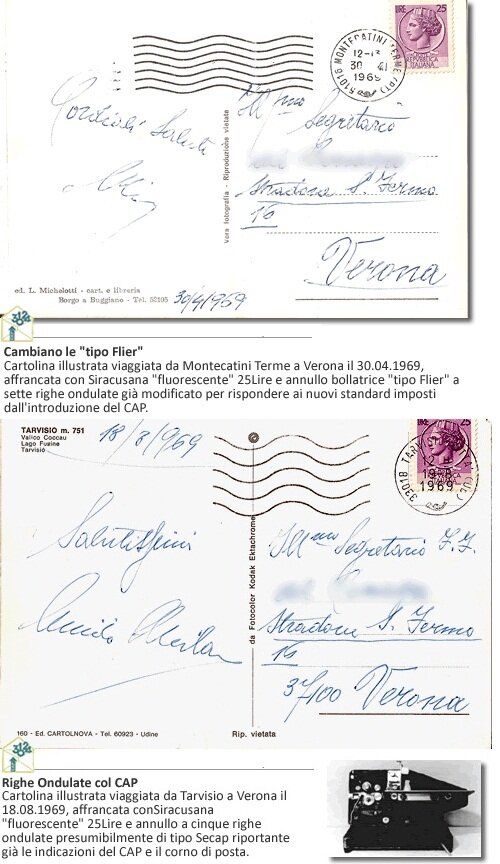 LIRE 25
REPUBBLICA
ITALIANA
51016 MONTECATINI TERME (PT)
12-13
30
1969
Cordiali Saluti
Ill.mo
Segretario
Stradone S. Fermo
16
Verona
Vera fotografia - Riproduzione vietata
ed. L. Michelotti - cart. e libreria
Borgo a Buggiano - Tel. 52105
30/4/1969
Cambiano le "tipo Flier"
Cartolina illustrata viaggiata da Montecatini Terme a Verona il 30.04.1969,
affrancata con Siracusana "fluorescente" 25Lire e annullo bollatrice "tipo Flier" a
sette righe ondulate già modificato per rispondere ai nuovi standard imposti
dall'introduzione del CAP.
TARVISIO m. 751
Valico Coccau
Lago Fusine
Tarvisio
18/8/1969
LIRE 25
33018
1969
Salutissimi
Guido
Ill.mo Segretario F.F.
Stradone S. Fermo
16
37100 Verona
da Fotocolor Kodak Ektachrome
160 - Ed. CARTOLNOVA - Tel. 60923 - Udine
Rip. vietata
Righe Ondulate col CAP
Cartolina illustrata viaggiata da Tarvisio a Verona il
18.08.1969, affrancata conSiracusana
"fluorescente" 25Lire e annullo a cinque righe
ondulate presumibilmente di tipo Secap riportante
già le indicazioni del CAP e il corno di posta.